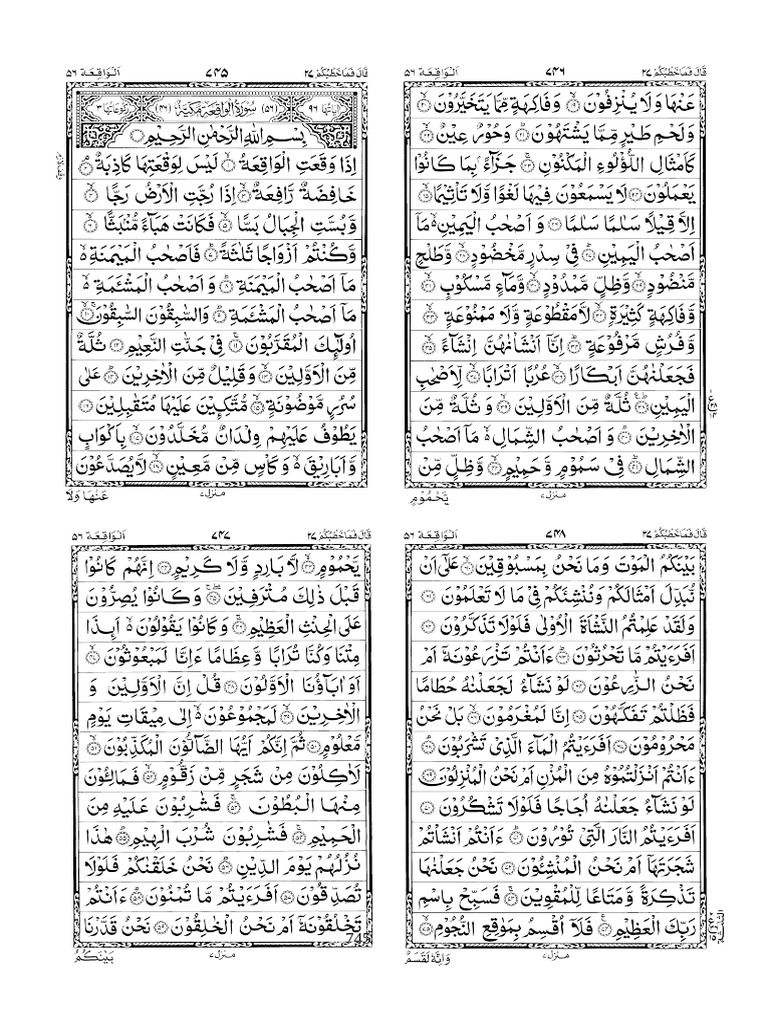 قَالَ فَمَا خَطْبُكُمْ ٢٧ ٧٤۵ اَلْوَاقِعَة ٥٦
اٰيَاتُهَا ٩٦ (٥٦) سُوْرَةُ الْوَاقِعَةِ مَكِّيَّةٌ (٤٦) رُكُوْعَاتُهَا ٣
بِسْمِ اللّٰهِ الرَّحْمٰنِ الرَّحِيْمِ
اِذَا وَقَعَتِ الْوَاقِعَةُ ۝١ لَيْسَ لِوَقْعَتِهَا كَاذِبَةٌ ۝٢
خَافِضَةٌ رَّافِعَةٌ ۝٣ اِذَا رُجَّتِ الْاَرْضُ رَجًّا ۝٤
وَّبُسَّتِ الْجِبَالُ بَسًّا ۝٥ فَكَانَتْ هَبَآءً مُّنْۢبَثًّا ۝٦
وَّكُنْتُمْ اَزْوَاجًا ثَلٰثَةً ۝٧ فَاَصْحٰبُ الْمَيْمَنَةِ ەۙ
مَاۤ اَصْحٰبُ الْمَيْمَنَةِ ۝٨ وَ اَصْحٰبُ الْمَشْئَمَةِ ەۙ
مَاۤ اَصْحٰبُ الْمَشْئَمَةِ ۝٩ وَالسّٰبِقُوْنَ السّٰبِقُوْنَ ۝١٠
اُولٰٓئِكَ الْمُقَرَّبُوْنَ ۝١١ فِيْ جَنّٰتِ النَّعِيْمِ ۝١٢ ثُلَّةٌ
مِّنَ الْاَوَّلِيْنَ ۝١٣ وَ قَلِيْلٌ مِّنَ الْاٰخِرِيْنَ ۝١٤ عَلٰى
سُرُرٍ مَّوْضُوْنَةٍ ۝١٥ مُّتَّكِـِٕيْنَ عَلَيْهَا مُتَقٰبِلِيْنَ ۝١٦
يَطُوْفُ عَلَيْهِمْ وِلْدَانٌ مُّخَلَّدُوْنَ ۝١٧ بِاَكْوَابٍ
وَّ اَبَارِيْقَ ەۙ وَ كَاْسٍ مِّنْ مَّعِيْنٍ ۝١٨ لَّا يُصَدَّعُوْنَ
منزل ٧ عَنْهَا وَلَا
قَالَ فَمَا خَطْبُكُمْ ٢٧ ٧٤٦ اَلْوَاقِعَة ٥٦
عَنْهَا وَ لَا يُنْزِفُوْنَ ۝١٩ وَ فَاكِهَةٍ مِّمَّا يَتَخَيَّرُوْنَ ۝٢٠
وَ لَحْمِ طَيْرٍ مِّمَّا يَشْتَهُوْنَ ۝٢١ وَ حُوْرٌ عِيْنٌ ۝٢٢
كَاَمْثَالِ اللُّؤْلُوَٴ الْمَكْنُوْنِ ۝٢٣ جَزَآءًۢ بِمَا كَانُوْا
يَعْمَلُوْنَ ۝٢٤ لَا يَسْمَعُوْنَ فِيْهَا لَغْوًا وَّ لَا تَاْثِيْمًا ۝٢٥
اِلَّا قِيْلًا سَلٰمًا سَلٰمًا ۝٢٦ وَ اَصْحٰبُ الْيَمِيْنِ ەۙ مَاۤ
اَصْحٰبُ الْيَمِيْنِ ۝٢٧ فِيْ سِدْرٍ مَّخْضُوْدٍ ۝٢٨ وَّ طَلْحٍ
مَّنْضُوْدٍ ۝٢٩ وَّ ظِلٍّ مَّمْدُوْدٍ ۝٣٠ وَّ مَآءٍ مَّسْكُوْبٍ ۝٣١
وَّ فَاكِهَةٍ كَثِيْرَةٍ ۝٣٢ لَّا مَقْطُوْعَةٍ وَّ لَا مَمْنُوْعَةٍ ۝٣٣
وَّ فُرُشٍ مَّرْفُوْعَةٍ ۝٣٤ اِنَّاۤ اَنْشَاْنٰهُنَّ اِنْشَآءً ۝٣٥
فَجَعَلْنٰهُنَّ اَبْكَارًا ۝٣٦ عُرُبًا اَتْرَابًا ۝٣٧ لِّاَصْحٰبِ
الْيَمِيْنِ ۝٣٨ ثُلَّةٌ مِّنَ الْاَوَّلِيْنَ ۝٣٩ وَ ثُلَّةٌ مِّنَ
الْاٰخِرِيْنَ ۝٤٠ وَ اَصْحٰبُ الشِّمَالِ ەۙ مَاۤ اَصْحٰبُ
الشِّمَالِ ۝٤١ فِيْ سَمُوْمٍ وَّ حَمِيْمٍ ۝٤٢ وَّ ظِلٍّ مِّنْ
منزل ٧ يَّحْمُوْمٍ
قَالَ فَمَا خَطْبُكُمْ ٢٧ ٧٤٧ اَلْوَاقِعَة ٥٦
يَّحْمُوْمٍ ۝٤٣ لَّا بَارِدٍ وَّ لَا كَرِيْمٍ ۝٤٤ اِنَّهُمْ كَانُوْا
قَبْلَ ذٰلِكَ مُتْرَفِيْنَ ۝٤٥ وَ كَانُوْا يُصِرُّوْنَ
عَلَى الْحِنْثِ الْعَظِيْمِ ۝٤٦ وَ كَانُوْا يَقُوْلُوْنَ ەۙ اَىِٕذَا
مِتْنَا وَ كُنَّا تُرَابًا وَّ عِظَامًا ءَاِنَّا لَمَبْعُوْثُوْنَ ۝٤٧
اَوَ اٰبَآؤُنَا الْاَوَّلُوْنَ ۝٤٨ قُلْ اِنَّ الْاَوَّلِيْنَ وَ
الْاٰخِرِيْنَ ۝٤٩ لَمَجْمُوْعُوْنَ ەۙ اِلٰى مِيْقَاتِ يَوْمٍ
مَّعْلُوْمٍ ۝٥٠ ثُمَّ اِنَّكُمْ اَيُّهَا الضَّآلُّوْنَ الْمُكَذِّبُوْنَ ۝٥١
لَاٰكِلُوْنَ مِنْ شَجَرٍ مِّنْ زَقُّوْمٍ ۝٥٢ فَمَالِـُٔوْنَ
مِنْهَا الْبُطُوْنَ ۝٥٣ فَشٰرِبُوْنَ عَلَيْهِ مِنَ
الْحَمِيْمِ ۝٥٤ فَشٰرِبُوْنَ شُرْبَ الْهِيْمِ ۝٥٥ هٰذَا
نُزُلُهُمْ يَوْمَ الدِّيْنِ ۝٥٦ نَحْنُ خَلَقْنٰكُمْ فَلَوْ لَا
تُصَدِّقُوْنَ ۝٥٧ اَفَرَءَيْتُمْ مَّا تُمْنُوْنَ ۝٥٨ ءَاَنْتُمْ
تَخْلُقُوْنَهٗۤ اَمْ نَحْنُ الْخٰلِقُوْنَ ۝٥٩ نَحْنُ قَدَّرْنَا
745
منزل ٧ بَيْنَكُمُ
قَالَ فَمَا خَطْبُكُمْ ٢٧ ٧٤٨ اَلْوَاقِعَة ٥٦
بَيْنَكُمُ الْمَوْتَ وَ مَا نَحْنُ بِمَسْبُوْقِيْنَ ۝٦٠ عَلٰۤى اَنْ
نُّبَدِّلَ اَمْثَالَكُمْ وَ نُنْشِئَكُمْ فِيْ مَا لَا تَعْلَمُوْنَ ۝٦١
وَ لَقَدْ عَلِمْتُمُ النَّشْاَةَ الْاُوْلٰى فَلَوْ لَا تَذَكَّرُوْنَ ۝٦٢
اَفَرَءَيْتُمْ مَّا تَحْرُثُوْنَ ۝٦٣ ءَاَنْتُمْ تَزْرَعُوْنَهٗۤ اَمْ
نَحْنُ الزّٰرِعُوْنَ ۝٦٤ لَوْ نَشَآءُ لَجَعَلْنٰهُ حُطَامًا
فَظَلْتُمْ تَفَكَّهُوْنَ ۝٦٥ اِنَّا لَمُغْرَمُوْنَ ۝٦٦ بَلْ نَحْنُ
مَحْرُوْمُوْنَ ۝٦٧ اَفَرَءَيْتُمُ الْمَآءَ الَّذِيْ تَشْرَبُوْنَ ۝٦٨
ءَاَنْتُمْ اَنْزَلْتُمُوْهُ مِنَ الْمُزْنِ اَمْ نَحْنُ الْمُنْزِلُوْنَ ۝٦٩
لَوْ نَشَآءُ جَعَلْنٰهُ اُجَاجًا فَلَوْ لَا تَشْكُرُوْنَ ۝٧٠
اَفَرَءَيْتُمُ النَّارَ الَّتِيْ تُوْرُوْنَ ۝٧١ ءَاَنْتُمْ اَنْشَاْتُمْ
شَجَرَتَهَاۤ اَمْ نَحْنُ الْمُنْشِـُٔوْنَ ۝٧٢ نَحْنُ جَعَلْنٰهَا
تَذْكِرَةً وَّ مَتَاعًا لِّلْمُقْوِيْنَ ۝٧٣ فَسَبِّحْ بِاسْمِ
رَبِّكَ الْعَظِيْمِ ۝٧٤ فَلَاۤ اُقْسِمُ بِمَوٰقِعِ النُّجُوْمِ ۝٧٥
منزل ٧ وَ اِنَّهٗ لَقَسَمٌ